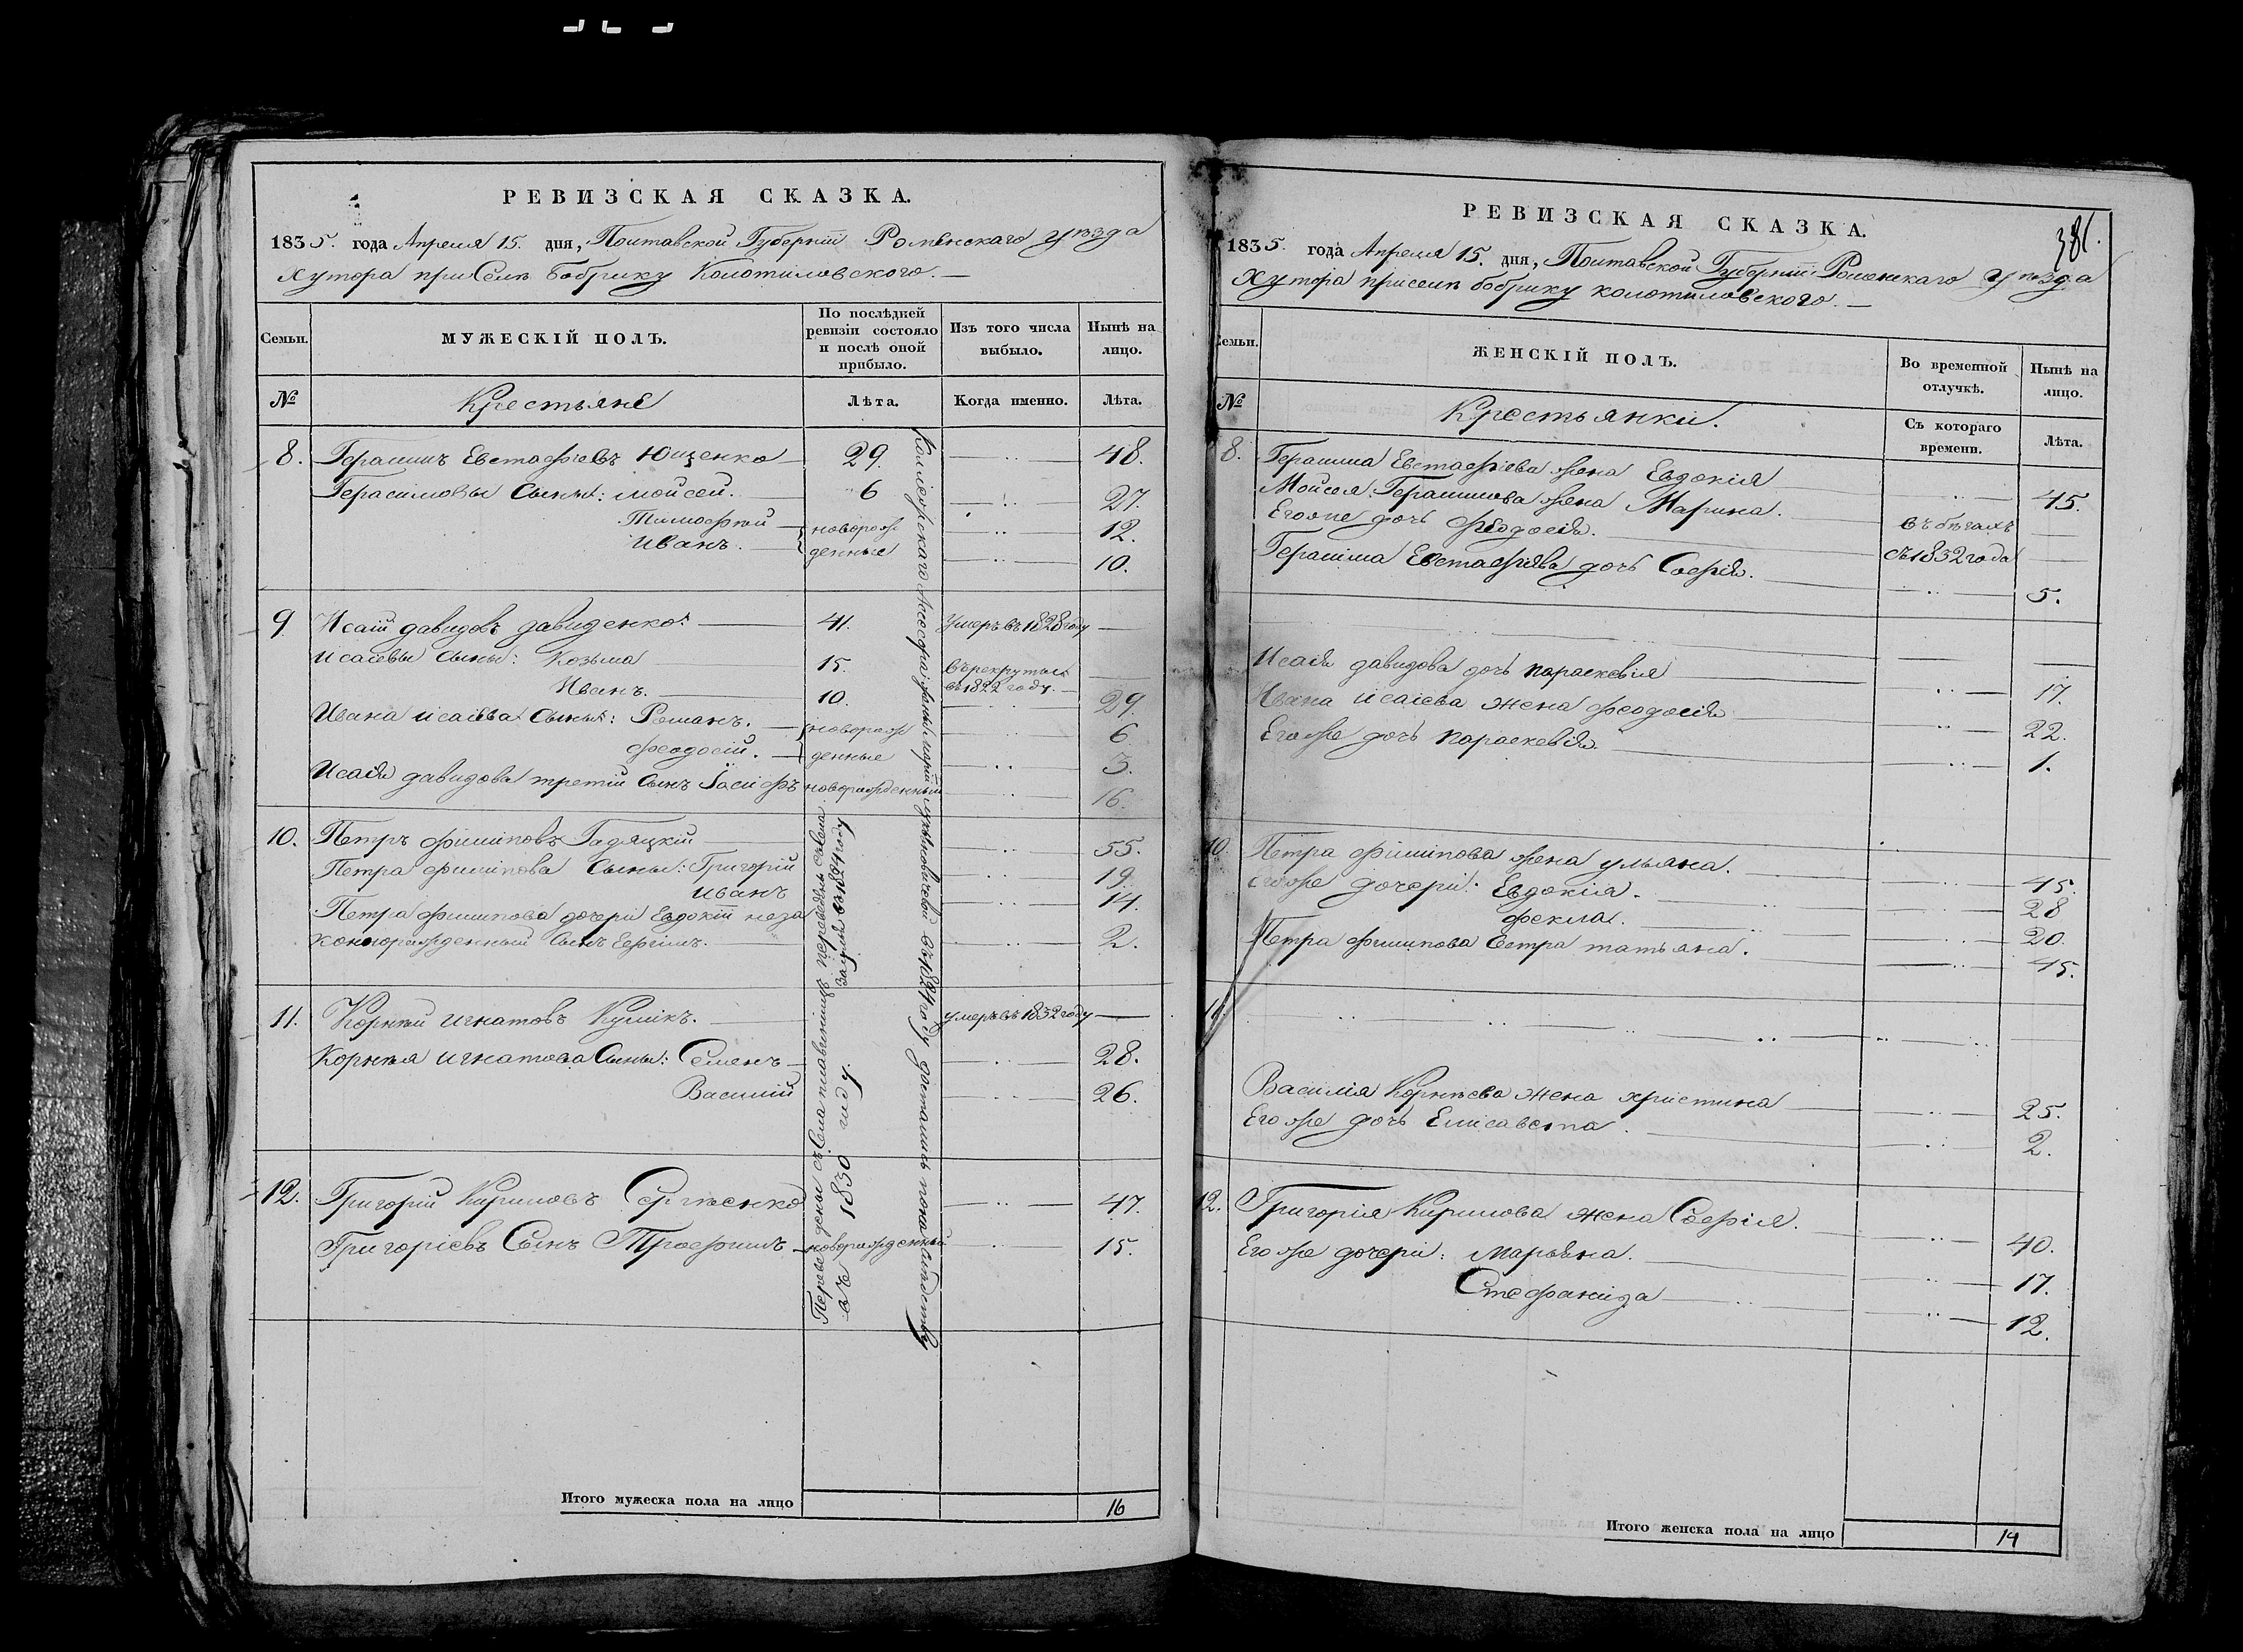 РЕВИЗСКАЯ СКАЗКА.
1835. года Апреля 15. дня, Полтавской Губерніи Роменскаго уезда
хутора при Селѣ Бобрику Колотиловского.
Семьи.
МУЖЕСКІЙ ПОЛЪ.
По послѣдней ревизіи состояло и послѣ оной прибыло.
Изъ того числа выбыло.
Нынѣ на лицо.
№
Крестьяне
Лѣта.
Когда именно.
Лѣта.
8. Герасимъ Евстафіевъ Ющенко 29. 48.
Герасимовы Сыны: Мойсей. 6 27.
Тимофѣй новорож 12.
Иванъ. денные 10.
9 Исаій давидовъ давиденко 41. Умеръ въ 1828 году
Исаіевы Сыны: Козьма 15. въ рекрутые въ 1822 году.
Иванъ. 10. 29.
Ивана исаіева Сыны: Романъ. новорож 6.
феодосій. денные 3.
Исаія давидова третій Сынъ Іосифъ новорожденный 16.
10. Петръ филиповъ Гадяцкій 55.
Петра филипова Сыны: Григорій 19.
иванъ 14.
Петра филипова дочери Евдокіи неза
коннорожденный Сынъ Ефимъ. 2.
11. Корнѣй игнатовъ Куликъ. умеръ въ 1832 году
Корнѣя игнатова Сыны: Семенъ 28.
Василій 26.
12. Григорій Кириловъ Сергѣенко 47.
Григоріевъ Сынъ Трофимъ новорожденный 15.
Переведены съ Села
въ 1830 году.
переведенъ съ Села
въ 1824 году
въ 1824 году достались по наследству
Итого мужеска пола на лицо 16
РЕВИЗСКАЯ СКАЗКА.
381.
1835. года Апреля 15. дня, Полтавской Губерніи Роменскаго Уезда
Хутора при селѣ бобрику колотиловского.
Семьи.
ЖЕНСКІЙ ПОЛЪ.
Во временной отлучкѣ.
Нынѣ на лицо.
№
Крестьянки.
Съ котораго времени.
Лѣта.
8. Герасима Евстафіева жена Евдокія 45.
Мойсея Герасимова жена Марина. въ бѣгахъ
Егоже дочь Феодосія. съ 1832 года
Герасима Евстафіева дочь Софія. 5.
Исаія давидова дочь параскевія 17.
Ивана исаіева жена феодосія 22.
Егоже дочь параскевія 1.
10. Петра филипова жена ульяна. 45.
егоже дочери: Евдокія. 28
фекла. 20.
Петра филипова Сестра татьяна. 45.
11.
Василія Корнѣева жена христина 25.
Егоже дочь Елисавета. 2.
12. Григорія Кирилова жена Софія. 40.
Егоже дочери: марьяна. 17.
Стефанида 12.
Итого женска пола на лицо 14